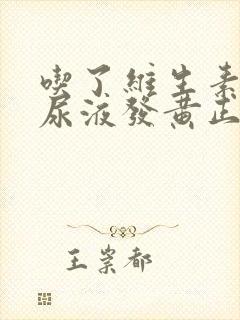 喫了維生素
尿液發黃正
王崇都